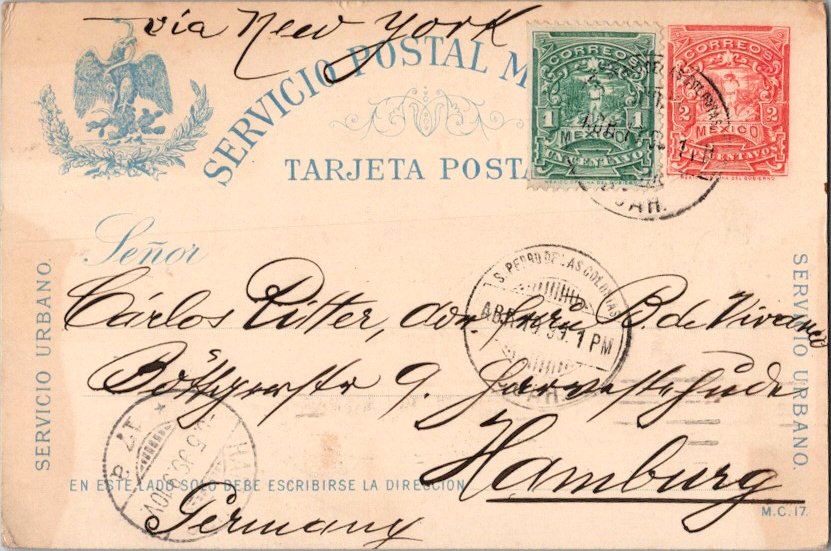 via New York
SERVICIO POSTAL M
TARJETA POSTA
CORREOS
1 1
MEXICO
UN CENTAVO
CORREOS
2 2
MEXICO
CENTAVOS
COAH.
Señor
S. PEDRO DE LAS COLONIAS
ABR 1 PM
Cárlos Ritter, adr. Herrn B. de Vivanco
Böttgerstr 9. Harvestehude
Hamburg
Germany
SERVICIO URBANO.
SERVICIO URBANO.
EN ESTE LADO SOLO DEBE ESCRIBIRSE LA DIRECCION
M.C.17.
HA
* 17